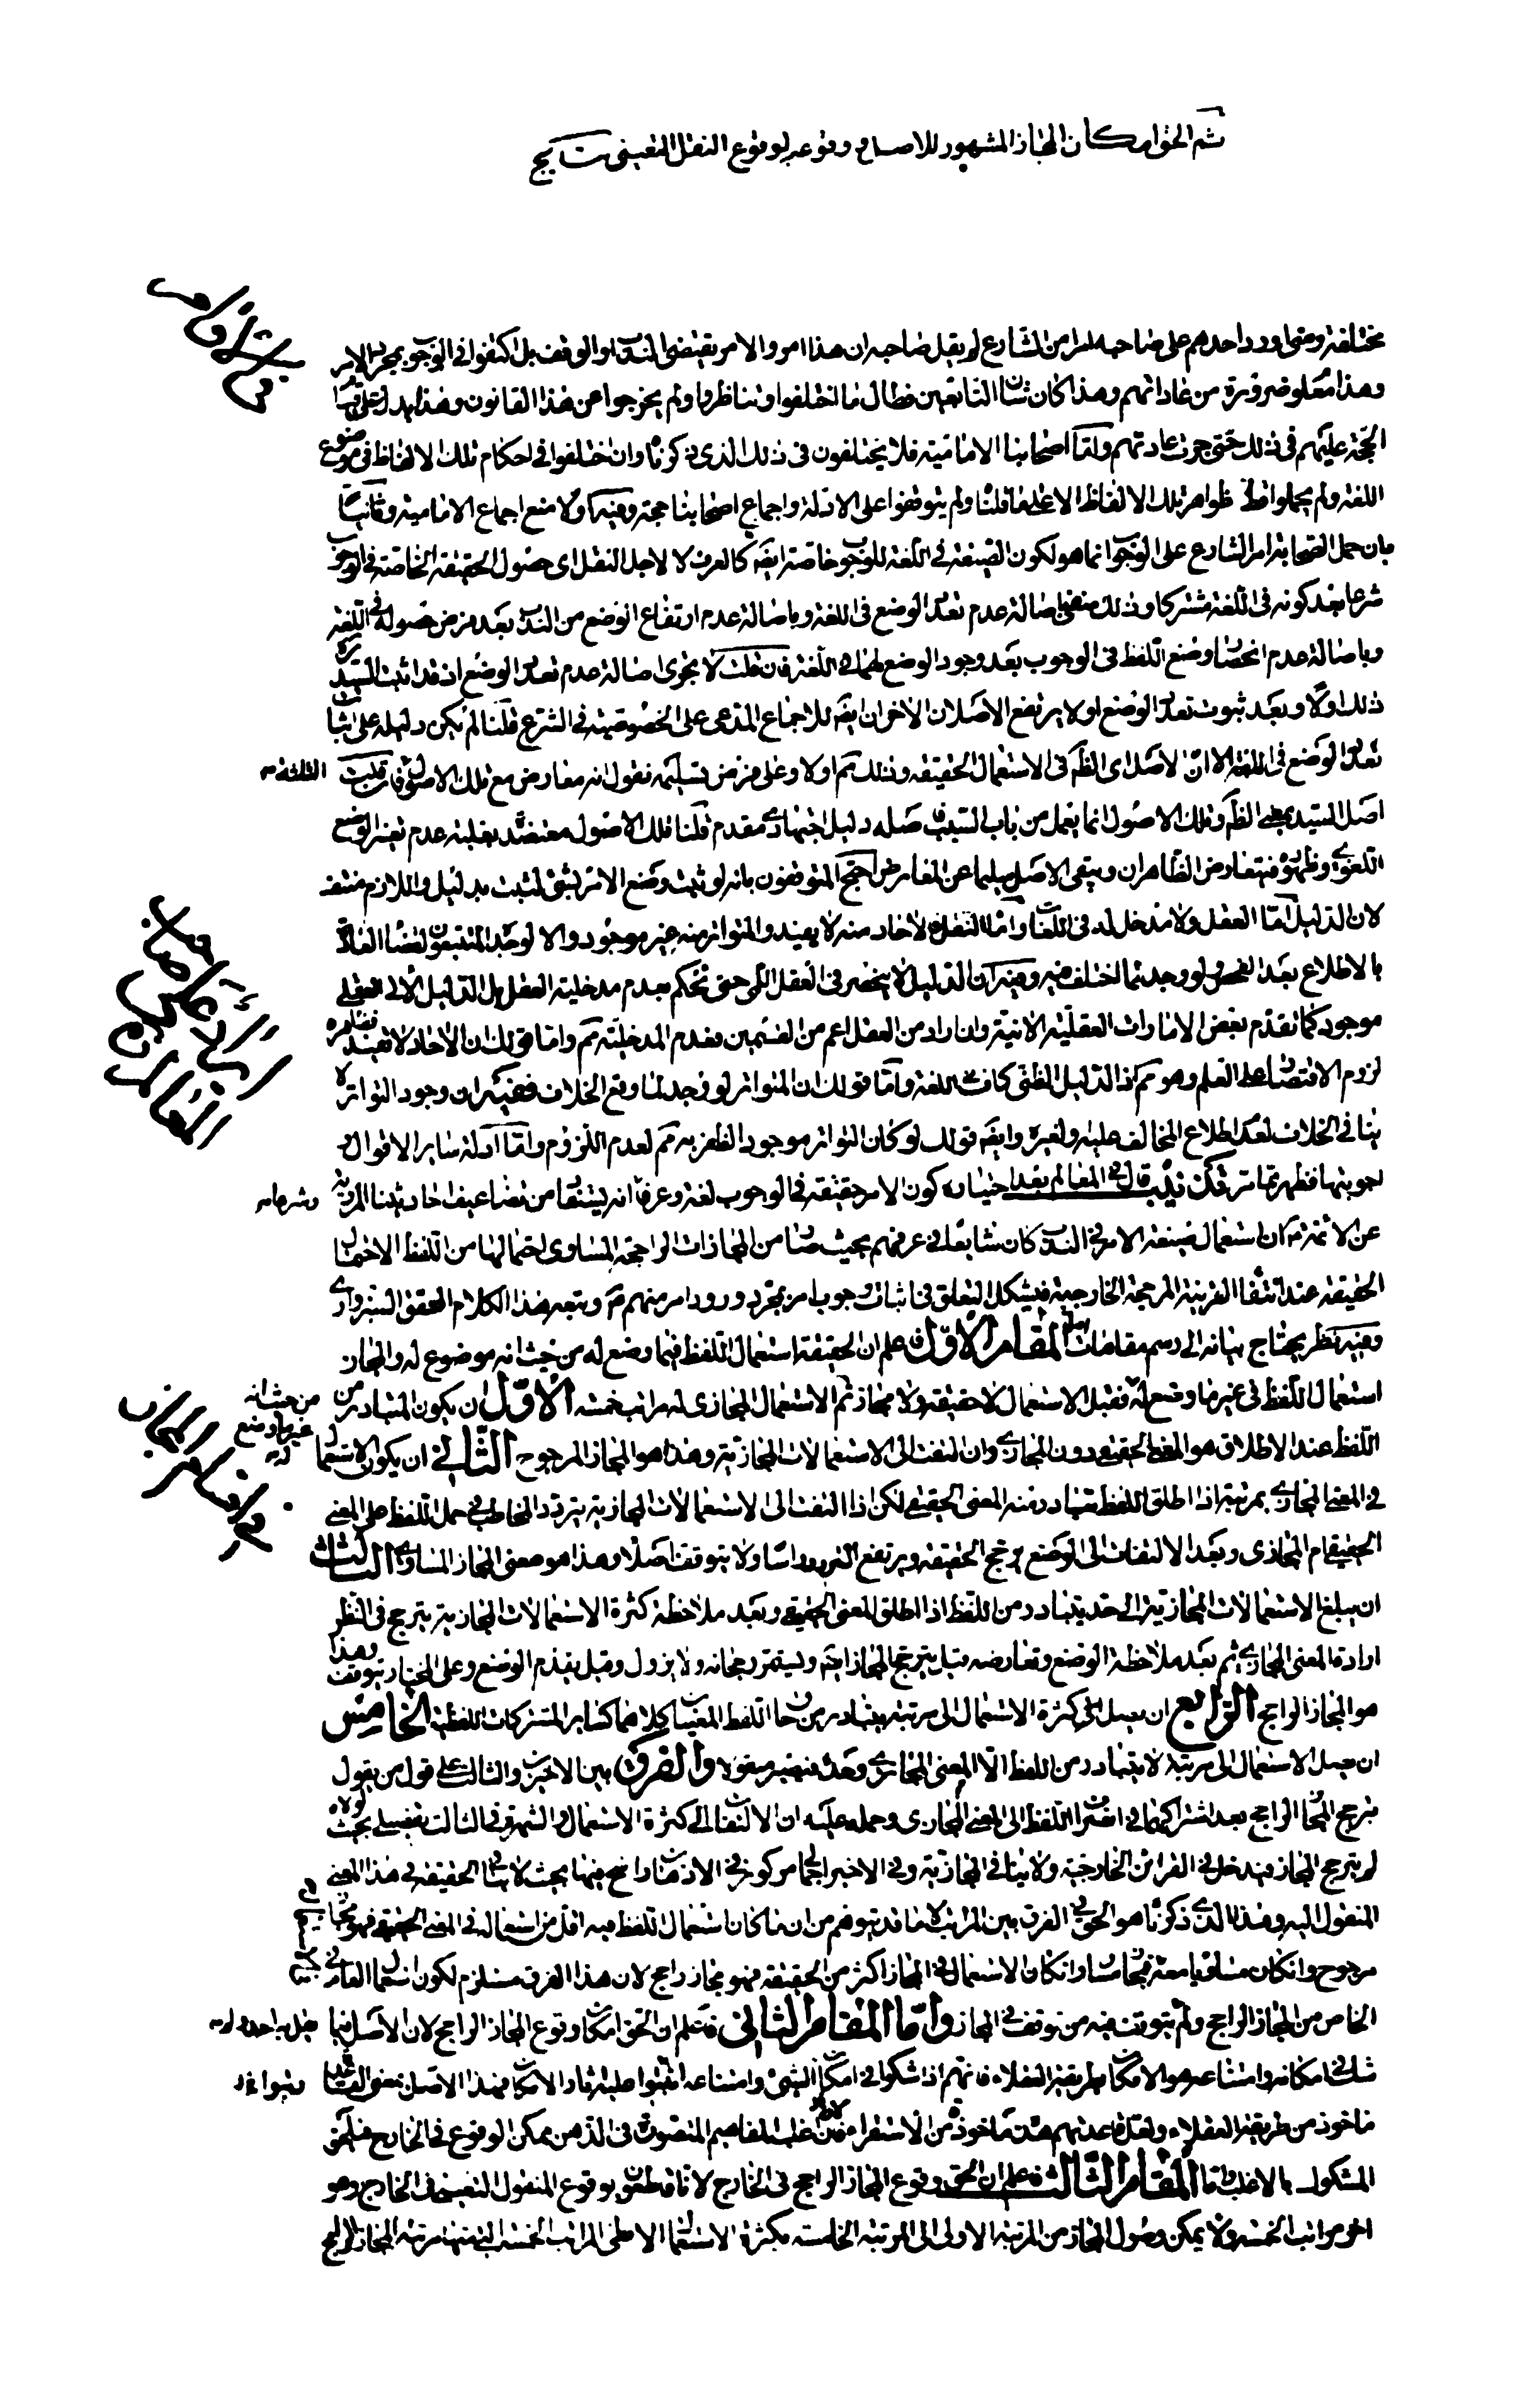 ثم الحق امكان المجاز المشهور للاصل و وقوعه لوقوع النقل التعيني
مختلفة ومتى اورد احدهم على صاحبه امرا من الشارع لم يقل صاحبه ان هذا امر والامر يقتضي الندب او الوقف بل اكتفوا في الوجوب بمجرد الامر
وهذا معلوم ضرورة من عاداتهم وهذا كان شان التابعين فطال ما اختلفوا وتناظروا ولم يخرجوا عن هذا القانون وهذا يدل على قيام
الحجة عليهم في ذلك حتى جرت عادتهم واما اصحابنا الامامية فلا يختلفون في ذلك الذي ذكرناه وان اختلفوا في احكام تلك الالفاظ في موضوع
اللغة ولم يحملوا قط ظواهر تلك الالفاظ الا على ما قلنا ولم يتوقفوا على الادلة واجماع اصحابنا حجة وفيه اولا منع اجماع الامامية وثانيا
بان حمل الصحابة امر الشارع على الوجوب انما هو لكون الصيغة في اللغة للوجوب خاصة ايضه كالعرف لا لاجل النقل اي حصول الحقيقة الخاصة في الوجوب
شرعا بعد كونه في اللغة مشتركا وذلك باصالة عدم تعدد الوضع في اللغة وباصالة عدم ارتفاع الوضع من الندب بعد فرض حصوله في اللغة
وباصالة عدم انحصار وضع اللفظ في الوجوب بعد وجود الوضع لهما في اللغة فان قلت لا يجري اصالة عدم تعدد الوضع اذ قد اثبت السيد ره
ذلك اولا وبعد ثبوت تعدد الوضع اولا يرتفع الاصلان الاخران ايضه للاجماع المدعى على الخصوصية في الشرع قلنا لم يكن دليله على اثبات
تعدد الوضع في اللغة الا ان الاصل اي الظم في الاستعمال الحقيقة وذلك مم اولا وعلى فرض تسليمه نقول انه معارض مع تلك الاصول الثلثة فان قلت
اصل السيد بمعنى الظم وتلك الاصول انما يعمل من باب التعبد فاصله دليل اجتهادي مقدم قلنا تلك الاصول معتضد بغلبة عدم تغير الوضع
اللغوي فيتعارض الظاهران ويبقى الاصل سليما عن المعارض احتج المتوقفون بانه لو ثبت وضع الامر لشيء لثبت بدليل واللازم منتف
لان الدليل اما العقل ولا مدخل له في اللغات واما النقل فالاحاد منه لا يفيد والمتواتر منه غير موجود والا لوجده المتتبعون لقضاء العادة
بالاطلاع بعد الفحص ولو وجد لما اختلف فيه وفيه ان الدليل لا ينحصر في العقل اللمي حتى تحكم بعدم مدخلية العقل بل الدليل الاني العقلي
موجود كما تقدم بعض الامارات العقلية الانية وان اراد من العقل اعم من القسمين فعدم المدخلية مم واما قولك ان الاحاد لا تفيد فظاهره
لزوم الاقتصار على العلم وهو مم اذ الدليل الظني كاف في اللغة واما قولك ان المتواتر لو وجد لما وقع الخلاف ففيه ان وجود التواتر لا
ينافي الخلاف لعدم اطلاع المخالف عليه ولغيره وايضه قولك لو كان التواتر موجودا لظفر به مم لعدم اللزوم واما ادلة ساير الاقوال و
اجوبتها فظهر مما مر تذنيب قال في المعالم بعد اختيار كون الامر حقيقة في الوجوب لغة وعرفا وشرعا انه يستفاد من تضاعيف احاديثنا المروية
عن الائمة ع ان استعمال صيغة الامر في الندب كان شايعا في عرفهم بحيث صار من المجازات الراجحة المساوي احتمالها من اللفظ لاحتمال
الحقيقة عند انتفاء القرينة المرجحة الخارجية فيشكل التعلق في اثبات وجوب امر بمجرد ورود امر منهم ع وتبعه بهذا الكلام المحقق السبزواري
وفيه نظر يحتاج بيانه الى رسم مقامات اما المقام الاول فاعلم ان الحقيقة استعمال اللفظ فيما وضع له من حيث انه موضوع له والمجاز
استعمال اللفظ في غير ما وضع له من حيث انه غير ما وضع له فقبل الاستعمال لا حقيقة ولا مجاز ثم الاستعمال المجازي له مراتب خمسة الاول ان يكون المتبادر من
اللفظ عند الاطلاق هو المعنى الحقيقي دون المجازي وان التفت الى الاستعمالات المجازية وهذا هو المجاز المرجوح الثاني ان يكون الاستعمال
في المعنى المجازي بمرتبة اذا اطلق اللفظ يتبادر منه المعنى الحقيقي لكن اذا التفت الى الاستعمالات المجازية يتردد المخاطب في حمل اللفظ على المعنى
الحقيقي ام المجازي وبعد الالتفات الى الوضع يرجح الحقيقة ويرتفع التردد راسا ولا يتوقف اصلا وهذا هو معنى المجاز المساوي الثالث
ان يبلغ الاستعمالات المجازية الى حد يتبادر من اللفظ اذا اطلق المعنى الحقيقي وبعد ملاحظة كثرة الاستعمالات المجازية يترجح في النظر
ارادة المعنى المجازي ثم بعد ملاحظة الوضع وتعارضه قيل يترجح المجاز ايضه ويستمر رجحانه ولا يزول وقيل يقدم الوضع وعلى المختار يتوقف وهذا
هو المجاز الراجح الرابع ان يصل كثرة الاستعمال الى مرتبة يتبادر من حاق اللفظ المعنيان كلاهما كساير المشتركات اللفظية الخامس
ان يصل الاستعمال الى مرتبة لا يتبادر من اللفظ الا المعنى المجازي وحده فيصير منقولا والفرق بين الاخيرين والثالث على قول من يقول
بترجيح المجاز الراجح بعد اشتراكهما في انصراف اللفظ الى المعنى المجازي وحمله عليه ان الالتفات الى كثرة الاستعمال والشهرة في الثالث تفصيلي بحيث لولاه
لم يترجح المجاز فيدخل في القرائن الخارجية ولا ينافي المجازية وفي الاخير اجمالي مركوز في الاذهان راسخ فيها بحيث لا ينافي الحقيقة في هذا المعنى
المنقول اليه وهذا الذي ذكرناه هو الحق في الفرق بين المراتب لا ما قد يتوهم من ان ما كان استعمال اللفظ فيه اقل من استعماله في المعنى الحقيقي فهو مجاز
مرجوح وان كان مساويا معه فمجاز مساو وان كان الاستعمال في المجاز اكثر من الحقيقة فهو مجاز راجح لان هذا الفرق مستلزم لكون استعمال العام في
الخاص من المجاز الراجح ولم يتوقف فيه من توقف في المجاز واما المقام الثاني فاعلم ان الحق امكان وقوع المجاز الراجح لان الاصل فيما
شك في امكانه وامتناعه هو الامكان لطريقة العقلاء فانهم اذا شكوا في امكان الشيء وامتناعه رتبوا عليه اثار الامكان فهذا الاصل بمعنى القاعدة
ماخوذ من طريقة العقلاء ولعل قاعدتهم هذه ماخوذة من الاستقراء فان اغلب المفاهيم المتصورة في الذهن ممكن الوقوع في الخارج فيلحق
المشكوك بالاغلب واما المقام الثالث فاعلم ان الحق وقوع المجاز الراجح في الخارج لانا قاطعون بوقوع المنقول التعيني في الخارج وهو
اخر مراتب الخمسة ولا يمكن وصول المجاز من المرتبة الاولى الى المرتبة الخامسة بكثرة الاستعمال الا بطي المراتب الخمسة التي منها مرتبة المجاز الراجح